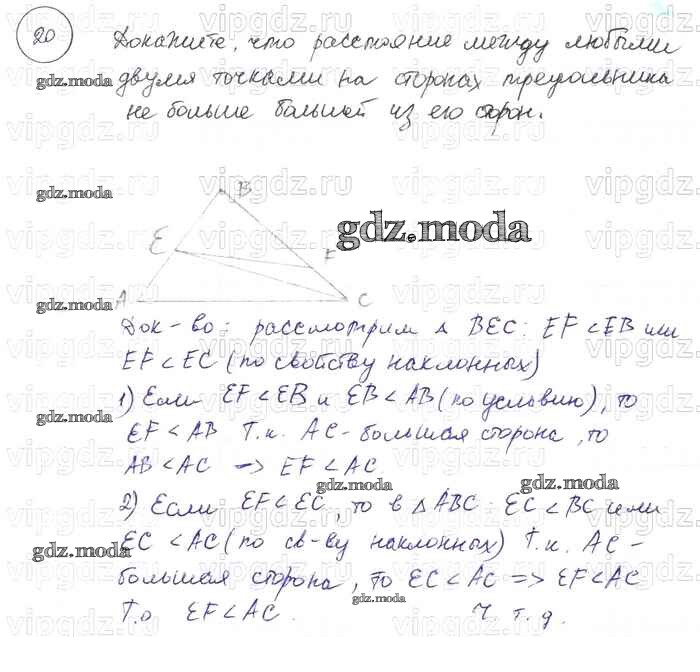 20
Докажите, что расстояние между любыми
двумя точками на сторонах треугольника
не больше большей из его сторон.
gdz.moda
vipgdz.ru
B
E
F
A
C
Док-во: рассмотрим △ BEC: EF < EB или
EF < EC (по свойству наклонных)
1) Если EF < EB и EB < AB (по условию), то
EF < AB Т.к. AC - большая сторона, то
AB < AC => EF < AC.
2) Если EF < EC, то в △ABC: EC < BC или
EC < AC (по св-ву наклонных) Т.к. AC -
большая сторона, то EC < AC => EF < AC
Т.о EF < AC. Ч.т.д.